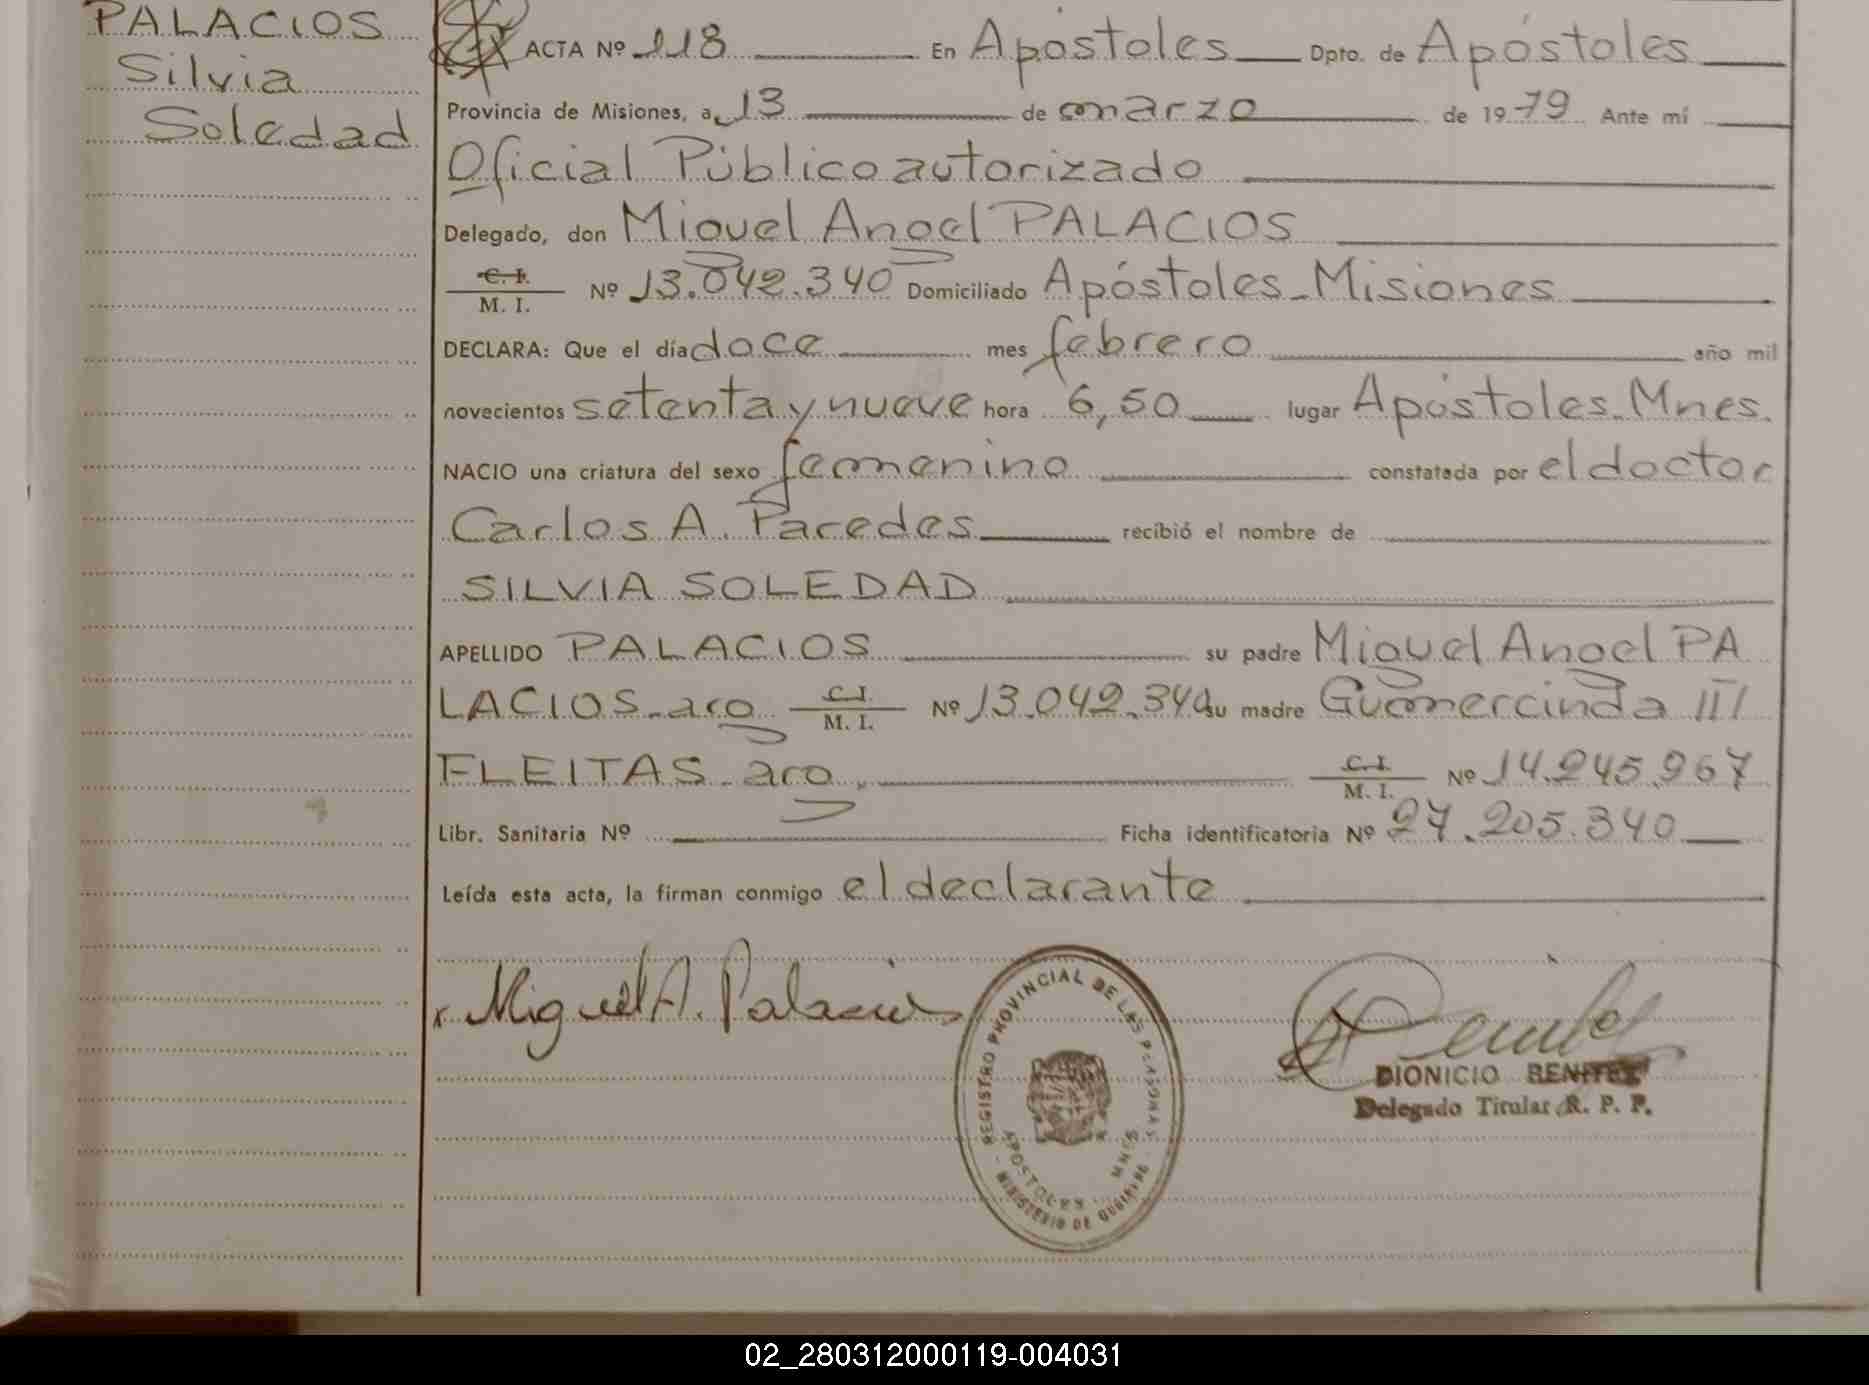 PALACIOS
Silvia
Soledad
ACTA Nº 118 En Apóstoles Dpto. de Apóstoles
Provincia de Misiones, a 13 de marzo de 1979 Ante mí
Oficial Público autorizado
Delegado, don Miguel Angel PALACIOS
C. I. / M. I. Nº 13.042.340 Domiciliado Apóstoles - Misiones
DECLARA: Que el día doce mes febrero año mil
novecientos setenta y nueve hora 6,50 lugar Apóstoles. Mnes.
NACIO una criatura del sexo femenino constatada por el doctor
Carlos A. Paredes recibió el nombre de
SILVIA SOLEDAD
APELLIDO PALACIOS su padre Miguel Angel PA
LACIOS - arg C.I. / M. I. Nº 13.042.340 su madre Gumercinda
FLEITAS - arg. C.I. / M. I. Nº 14.245.967
Libr. Sanitaria Nº Ficha identificatoria Nº 27.205.340
Leída esta acta, la firman conmigo el declarante
x Miguel A. Palacios
REGISTRO PROVINCIAL DE LAS PERSONAS
APOSTOLES MNES
MINISTERIO DE GOBIERNO
DIONICIO BENITEZ
Delegado Titular R. P. P.
02_280312000119-004031